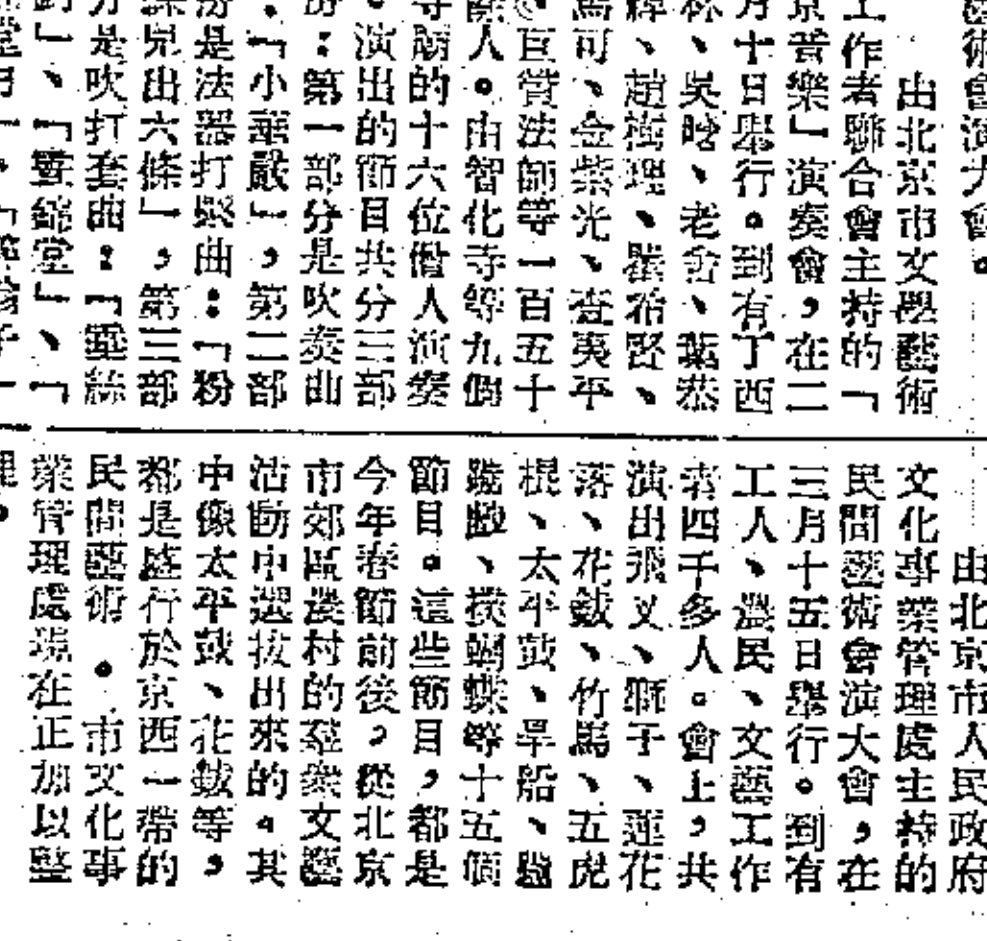 藝術會演大會。
出北京市文學藝術
工作者聯合會主持的「
京音樂」演奏會，在二
月十日舉行。到有丁西
林、吳晗、老舍、葉恭
綽、趙樹理、
馬可、金紫光、查夷平
、巨贊法師等一百五十
餘人。由智化寺等九個
寺廟的十六位僧人演奏
。演出的節目共分三部
份：第一部分是吹奏曲
：「小華嚴」，第二部
份是法器打擊曲：「粉
蝶兒出六條」，第三部
分是吹打套曲：「
」、「錦堂」、「
堂月」，「
文化事業管理處主持的
由北京市人民政府
民間藝術會演大會，在
三月十五日舉行。到有
工人、農民、文藝工作
者四千多人。會上，共
演出飛叉、獅子、蓮花
落、花鼓、竹馬、五虎
棍、太平鼓、旱船、
、撲蝴蝶等十五個
節目。這些節目，都是
今年春節前後，從北京
市郊區農村的羣衆文藝
活動中選拔出來的。其
中像太平鼓、花鼓等，
都是盛行於京西一帶的
民間藝術。市文化事
業管理處現在正加以整
理。